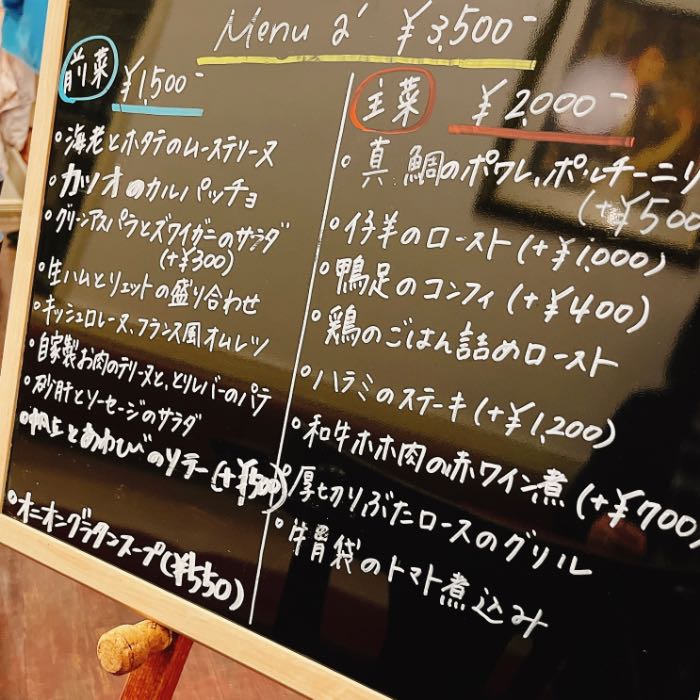 Menu a' ¥3,500-
前菜 ¥1,500-
・海老とホタテのムーステリーヌ
・カツオのカルパッチョ
・グリーンアスパラとズワイガニのサラダ
(+¥300)
・生ハムとリエットの盛り合わせ
・キッシュロレーヌ、フランス風オムレツ
・自家製お肉のテリーヌと、とりレバーのパテ
・砂肝とソーセージのサラダ
・帆立とあわびのソテー(+¥500)
・オニオングラタンスープ(¥550)
主菜 ¥2,000-
・真鯛のポワレ、ポルチーニリ
(+¥500
・仔羊のロースト(+¥1,000)
・鴨足のコンフィ(+¥400)
・鶏のごはん詰めロースト
・ハラミのステーキ(+¥1,200)
・和牛ホホ肉の赤ワイン煮(+¥700)
・厚切りぶたロースのグリル
・牛胃袋のトマト煮込み